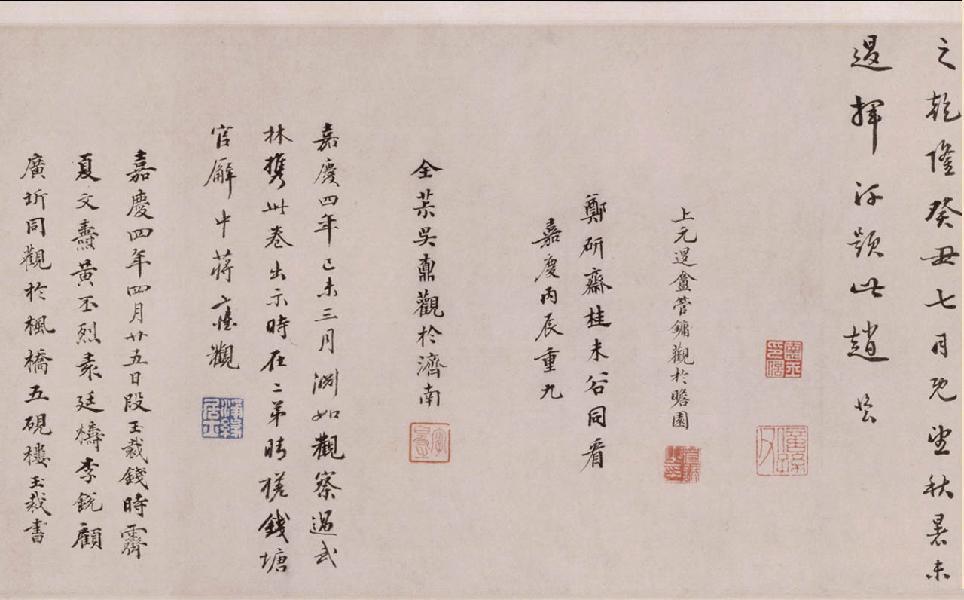 之乾隆癸丑七月既望秋暑未
退揮汗題此趙
上元退盦管鏞觀於瞻園
鄭研齋桂未谷同看
嘉慶丙辰重九
全茮吳鼒觀於濟南
嘉慶四年己未三月淵如觀察過武
林攜此卷出示時在二弟晴槎錢塘
官廨中蔣觀
嘉慶四年四月廿五日段玉裁錢時霽
夏文燾黃丕烈袁廷檮李銳顧
廣圻同觀於楓橋五硯樓玉裁書